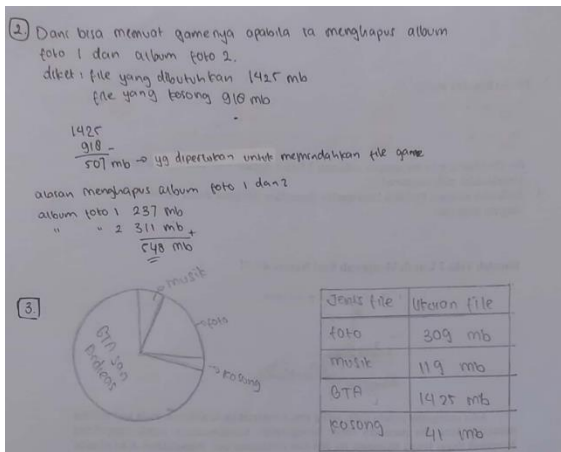 2. Dani bisa memuat gamenya apabila ia menghapus album
foto 1 dan album foto 2.
diket : file yang dibutuhkan 1425 mb
file yang kosong 918 mb
1425
918 -
507 mb → yg diperlukan untuk memindahkan file game
alasan menghapus album foto 1 dan 2
album foto 1 237 mb
" " 2 311 mb +
548 mb
3.
musik
foto
kosong
GTA San
Andreas
Jenis file Ukuran file
foto 309 mb
musik 119 mb
GTA 1425 mb
kosong 41 mb